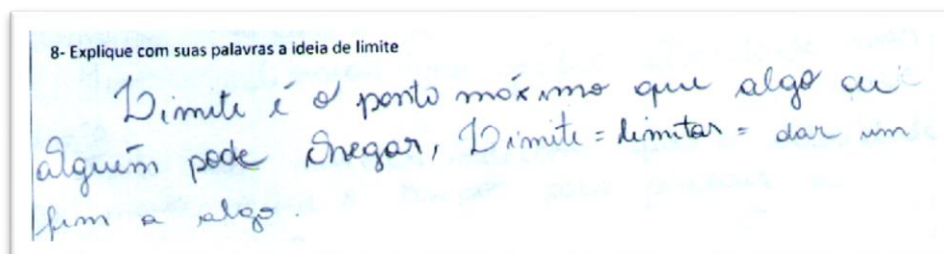 8- Explique com suas palavras a ideia de limite
Limite é o ponto máximo que algo ou
alguém pode chegar, Limite = limitar = dar um
fim a algo.